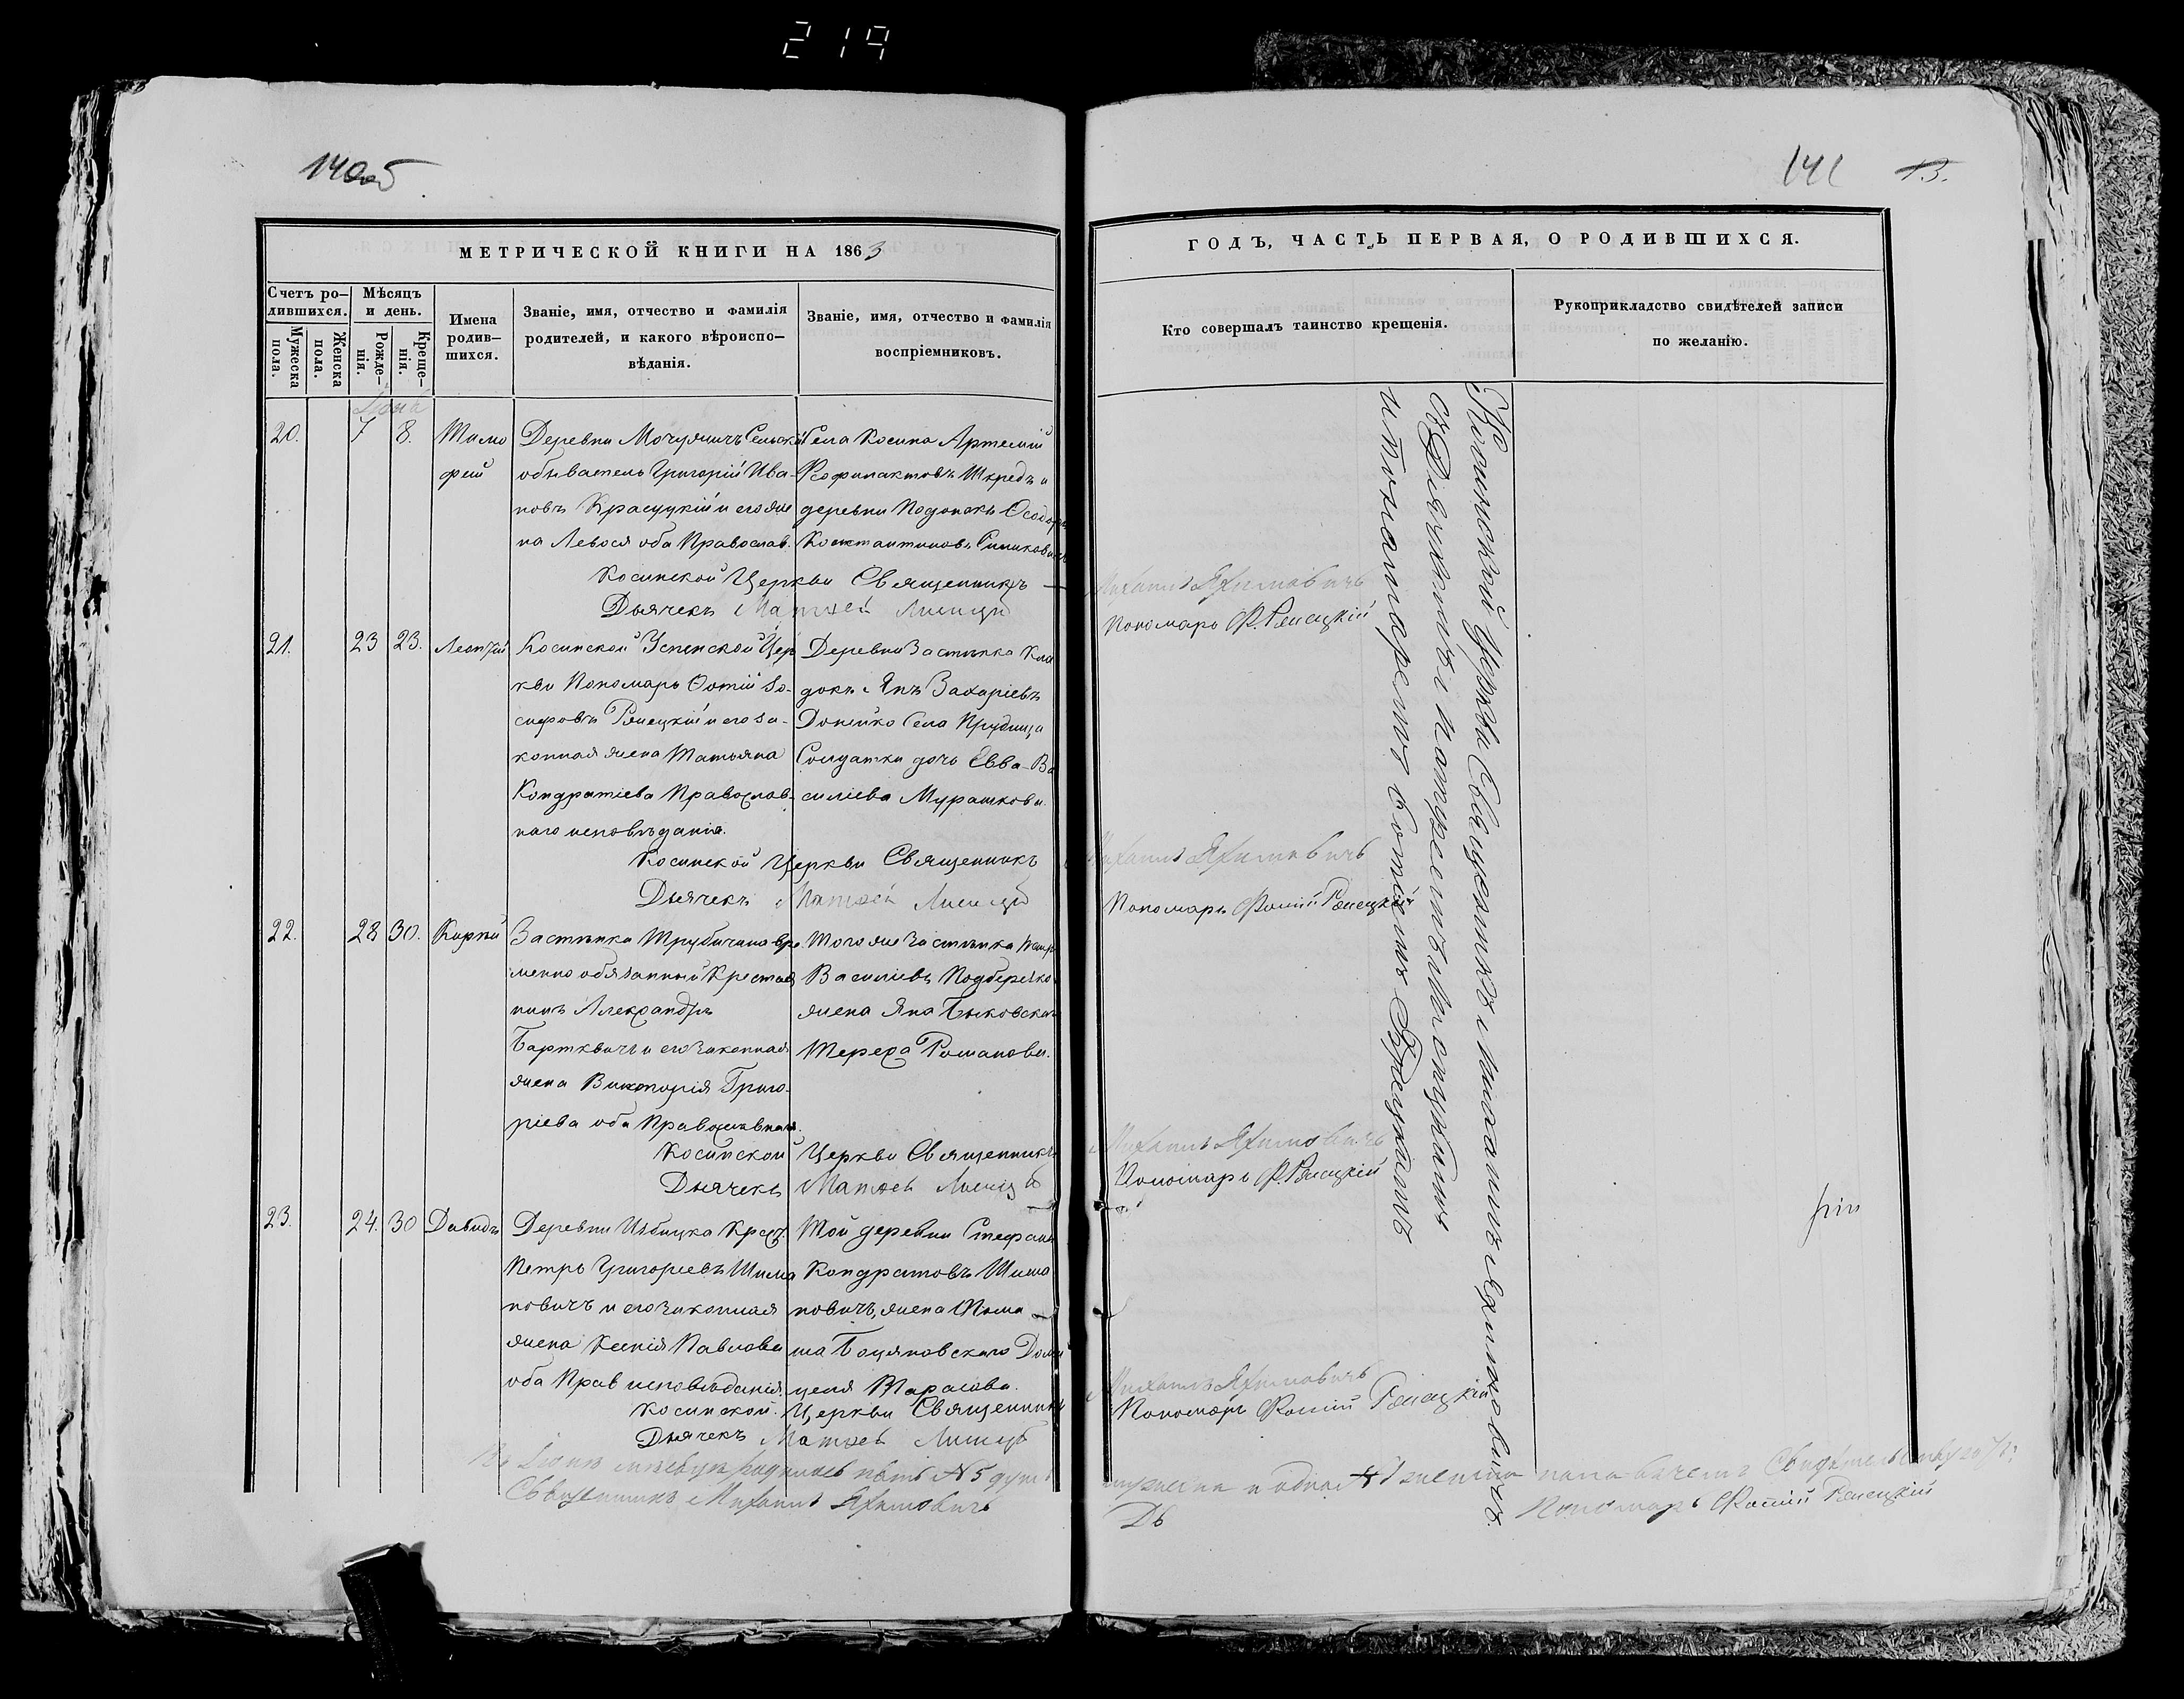 219
140об
141 13.
МЕТРИЧЕСКОЙ КНИГИ НА 1863
ГОДЪ, ЧАСТЬ ПЕРВАЯ, О РОДИВШИХСЯ.
Счетъ ро-
дившихся.
Мужеска
пола.
Женска
пола.
Мѣсяцъ
и день.
Рожде-
нія.
Креще-
нія.
Имена
родив-
шихся.
Званіе, имя, отчество и фамилія
родителей, и какого вѣроиспо-
вѣданія.
Званіе, имя, отчество и фамилія
воспріемниковъ.
Кто совершалъ таинство крещенія.
Рукоприкладство свидѣтелей записи
по желанію.
Іюнь
20. 7 8. Тимо
фей
Деревни Сельскій
обыватель Григорій Ива-
новъ Красуцкій и его же
на Левося оба Православ.
Села Косина Артемій
Феофилактовъ Шкредъ и
деревни
Константинов
Косинской Церкви Священникъ Михаилъ Яхимовичъ
Дьячекъ Матѳей Лисицы Пономарь Ф. Ржецкій
21. 23 23. Леонтій
Косинской Успенской Цер
кви Пономарь Фотій Іо-
сифовъ Ржецкій и его за-
конная жена Татьяна
Кондратіева Православ-
наго исповѣданія.
Деревни Застѣнка
Янъ Захаріевъ
Донейко Села Прудища
Солдатки дочь Евва Ва
силіева Мурашкова.
Косинской Церкви Священникъ Михаилъ Яхимовичъ
Дьячекъ Матѳей Лисицы Пономарь Фотій Ржецкій
22. 28 30. Карпъ
Застѣнка вре
менно обязанный Крестья
нинъ Александръ
Барткевичъ и его законная
жена Викторія Григо-
ріева оба Православные.
Того же Застѣнка Петръ
Василіевъ Подберезко
жена Яна Быковскаго
Тереха Романова.
Косинской Церкви Священникъ Михаилъ Яхимовичъ
Дьячекъ Матѳей Лисицы Пономарь Ф. Ржецкій
23. 24. 30 Давидъ
Деревни Избицка Крест.
Петръ Григоріевъ Шима
новичъ и его законная
жена Ксенія Павлова
оба Прав исповѣданія
Той деревни Стефанъ
Кондратовъ Шима
новичъ, жена Фома
ша Боцяновскаго Доми
целя Тарасова.
Косинской Церкви Священникъ Михаилъ Яхимовичъ
Дьячекъ Матѳей Лисицы Пономарь Фотій Ржецкій
Косинской Церкви Священникъ Михаилъ Яхимовичъ
съ Дьячкомъ Матѳеемъ Лисицынымъ
и Пономаремъ Фотіемъ Ржецкимъ
Въ Іюнѣ мѣсяцѣ родилось пять № 5 душъ мужеска и одна № 1 женска пола
Священникъ Михаилъ Яхимовичъ
Дь
Пономарь Фотій Ржецкій